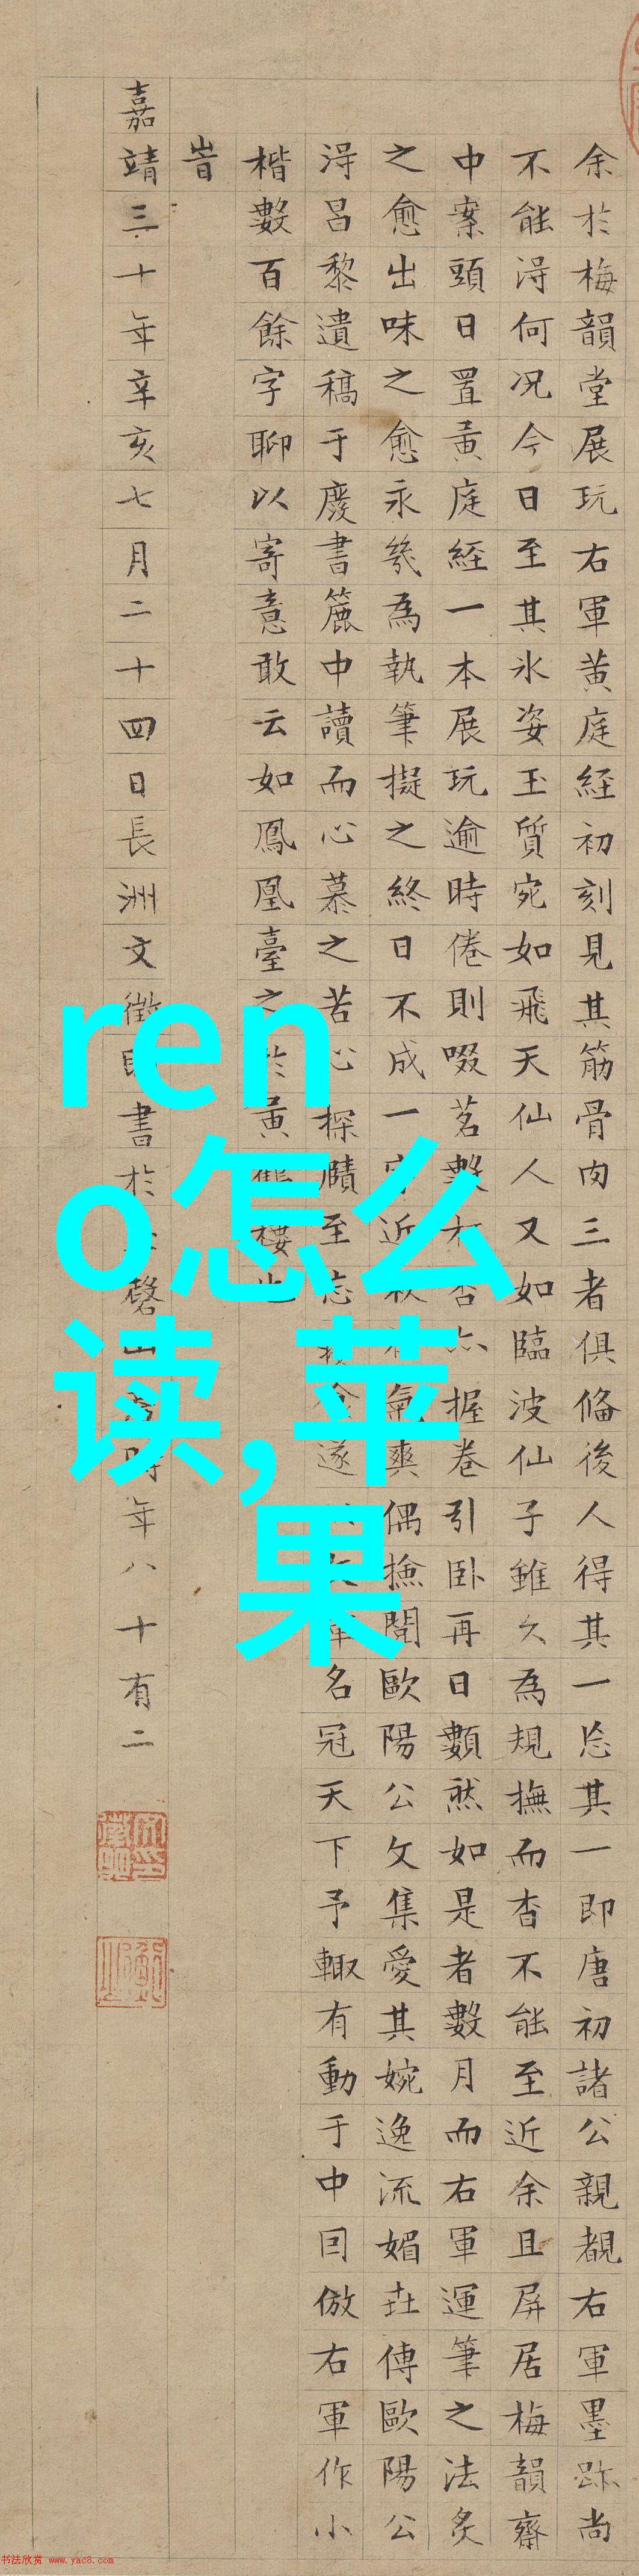 余於梅韻堂展玩右軍黄庭經初刻見其筋骨肉三者俱備後人得其一忘其一即唐初諸公親覩右軍墨跡尚
不能淂何况今日至其氷姿玉質宛如飛天仙人又如臨波仙子雖久為規撫而杳不能至近余且屏居梅韻齋
中案頭日置黃庭經一本展玩逾時倦則啜茗數杯否亦握卷引卧再日數然如是者數月而右軍運筆之法炙
之愈出味之愈永㡬為執筆擬之終日不成一字近氣爽偶撿閱歐陽公文集愛其婉逸流媚㽵傳歐陽公
淂昌黎遺稿于廢書簏中讀而心慕之苦心探賾至忘遂名冠天下予輙有動于中因倣右軍作小
楷數百餘字聊以寄意敢云如鳳凰臺之於黃鶴樓也
旹
嘉靖三十年辛亥七月二十四日長洲文徵明書於磬山時年八十有二
ren
o怎么
读,苹
果
书法欣赏 www.yac8.com